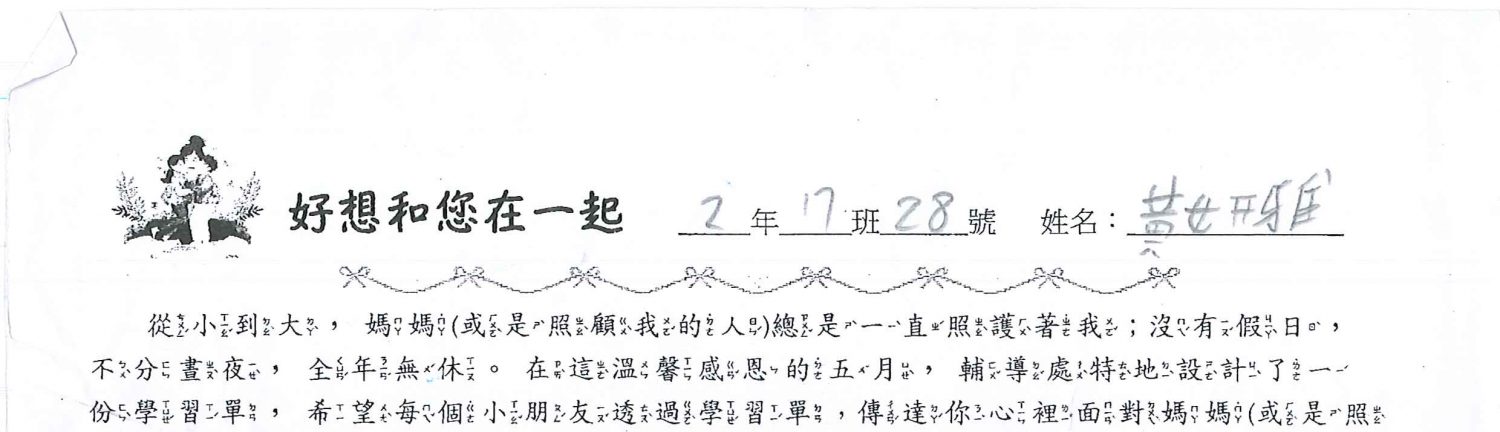 好想和您在一起 2年17班28號 姓名：黃妍雅
從小到大，媽媽(或是照顧我的人)總是一直照護著我；沒有假日，
不分晝夜，全年無休。在這溫馨感恩的五月，輔導處特地設計了一
份學習單，希望每個小朋友透過學習單，傳達你心裡面對媽媽(或是照